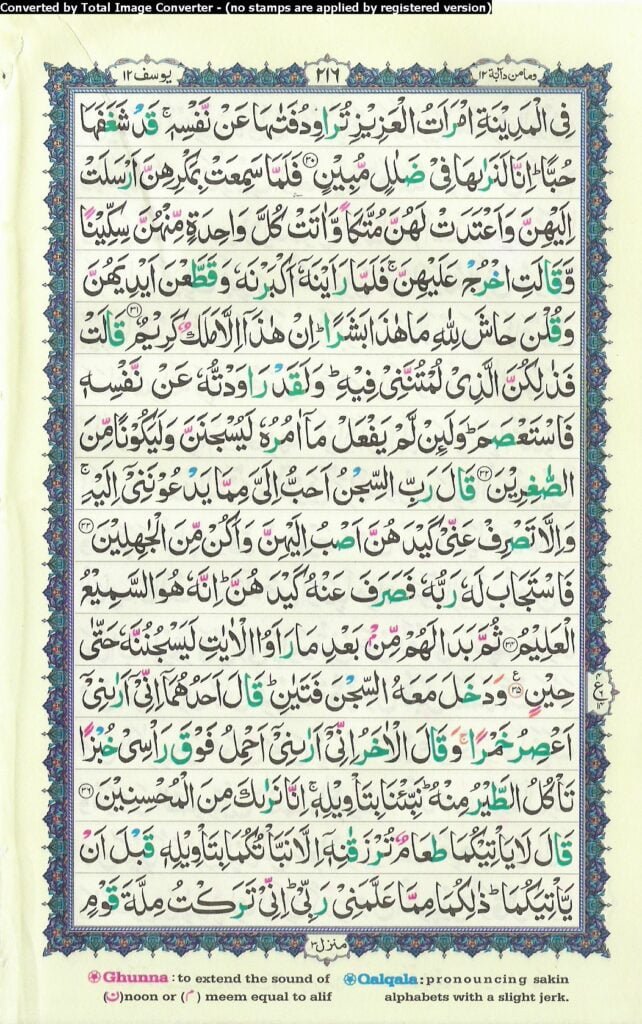 Converted by Total Image Converter - (no stamps are applied by registered version)
وما من دآبة ١٢
٢١٦
يوسف ١٢
فِى الْمَدِيْنَةِ امْرَاَتُ الْعَزِيْزِ تُرَاوِدُ فَتٰىهَا عَنْ نَّفْسِهٖ ۚ قَدْ شَغَفَهَا
حُبًّا ؕ اِنَّا لَنَرٰىهَا فِىْ ضَلٰلٍ مُّبِيْنٍ ﴿۳۰﴾ فَلَمَّا سَمِعَتْ بِمَكْرِهِنَّ اَرْسَلَتْ
اِلَيْهِنَّ وَاَعْتَدَتْ لَهُنَّ مُتَّكَاً وَّاٰتَتْ كُلَّ وَاحِدَةٍ مِّنْهُنَّ سِكِّيْنًا
وَّقَالَتِ اخْرُجْ عَلَيْهِنَّ ۚ فَلَمَّا رَاَيْنَهٗۤ اَكْبَرْنَهٗ وَقَطَّعْنَ اَيْدِيَهُنَّ
وَقُلْنَ حَاشَ لِلّٰهِ مَا هٰذَا بَشَرًا ؕ اِنْ هٰذَاۤ اِلَّا مَلَكٌ كَرِيْمٌ ﴿۳۱﴾ قَالَتْ
فَذٰلِكُنَّ الَّذِىْ لُمْتُنَّنِىْ فِيْهِ ؕ وَلَقَدْ رَاوَدْتُّهٗ عَنْ نَّفْسِهٖ
فَاسْتَعْصَمَ ؕ وَلَئِنْ لَّمْ يَفْعَلْ مَاۤ اٰمُرُهٗ لَيُسْجَنَنَّ وَلَيَكُوْنًا مِّنَ
الصّٰغِرِيْنَ ﴿۳۲﴾ قَالَ رَبِّ السِّجْنُ اَحَبُّ اِلَىَّ مِمَّا يَدْعُوْنَنِىْۤ اِلَيْهِ ۚ
وَاِلَّا تَصْرِفْ عَنِّىْ كَيْدَهُنَّ اَصْبُ اِلَيْهِنَّ وَاَكُنْ مِّنَ الْجٰهِلِيْنَ ﴿۳۳﴾
فَاسْتَجَابَ لَهٗ رَبُّهٗ فَصَرَفَ عَنْهُ كَيْدَهُنَّ ؕ اِنَّهٗ هُوَ السَّمِيْعُ
الْعَلِيْمُ ﴿۳۴﴾ ثُمَّ بَدَا لَهُمْ مِّنْۢ بَعْدِ مَا رَاَوُا الْاٰيٰتِ لَيَسْجُنُنَّهٗ حَتّٰى
حِيْنٍ ﴿۳۵﴾ وَدَخَلَ مَعَهُ السِّجْنَ فَتَيٰنِ ؕ قَالَ اَحَدُهُمَاۤ اِنِّىْۤ اَرٰىنِىْۤ
اَعْصِرُ خَمْرًا ۚ وَقَالَ الْاٰخَرُ اِنِّىْۤ اَرٰىنِىْۤ اَحْمِلُ فَوْقَ رَاْسِىْ خُبْزًا
تَاْكُلُ الطَّيْرُ مِنْهُ ؕ نَبِّئْنَا بِتَاْوِيْلِهٖ ۚ اِنَّا نَرٰىكَ مِنَ الْمُحْسِنِيْنَ ﴿۳۶﴾
قَالَ لَا يَاْتِيْكُمَا طَعَامٌ تُرْزَقٰنِهٖۤ اِلَّا نَبَّاْتُكُمَا بِتَاْوِيْلِهٖ قَبْلَ اَنْ
يَّاْتِيَكُمَا ؕ ذٰلِكُمَا مِمَّا عَلَّمَنِىْ رَبِّىْ ؕ اِنِّىْ تَرَكْتُ مِلَّةَ قَوْمٍ
منزل ٣
Ghunna : to extend the sound of
(ن)noon or (م) meem equal to alif
Qalqala : pronouncing sakin
alphabets with a slight jerk.